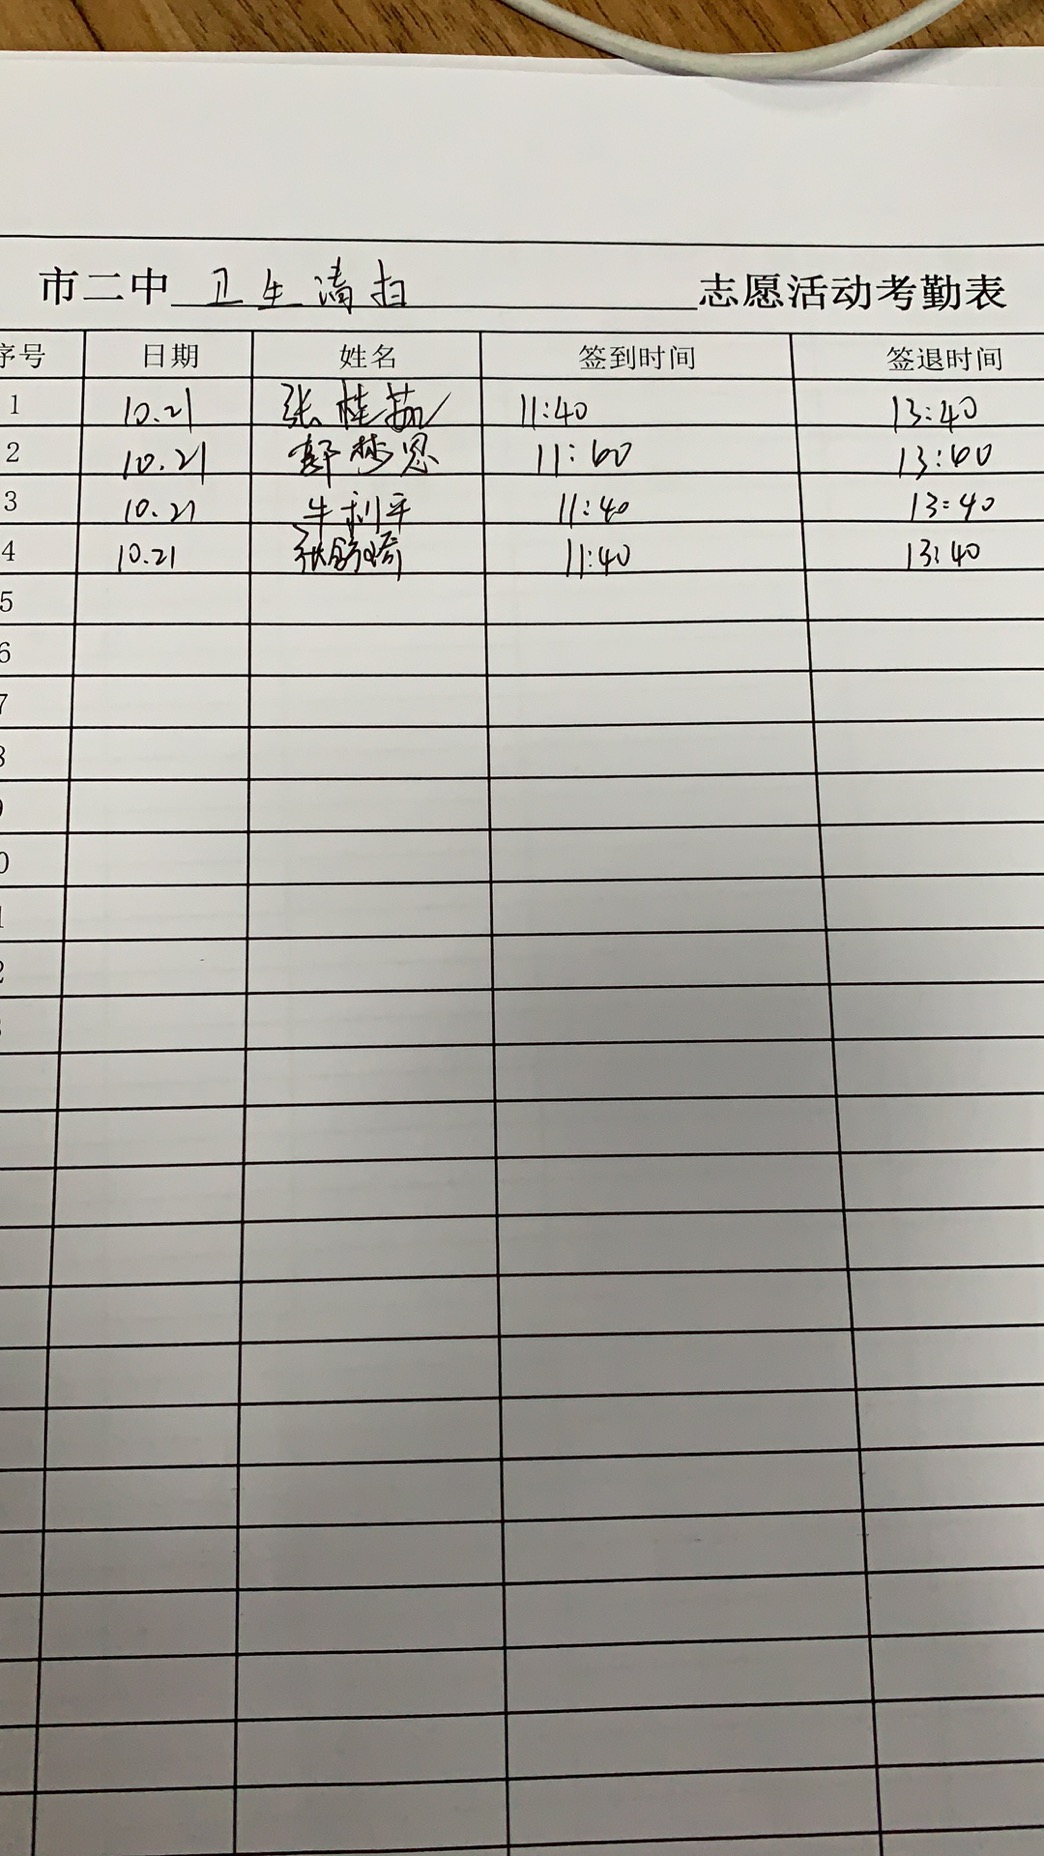 市二中 卫生清扫 志愿活动考勤表
序号 日期 姓名 签到时间 签退时间
1 10.21 张桂茹 11:40 13:40
2 10.21 梦恩 11:40 13:40
3 10.21 牛利平 11:40 13:40
4 10.21 张 11:40 13:40
5
6
7
8
9
0
1
2